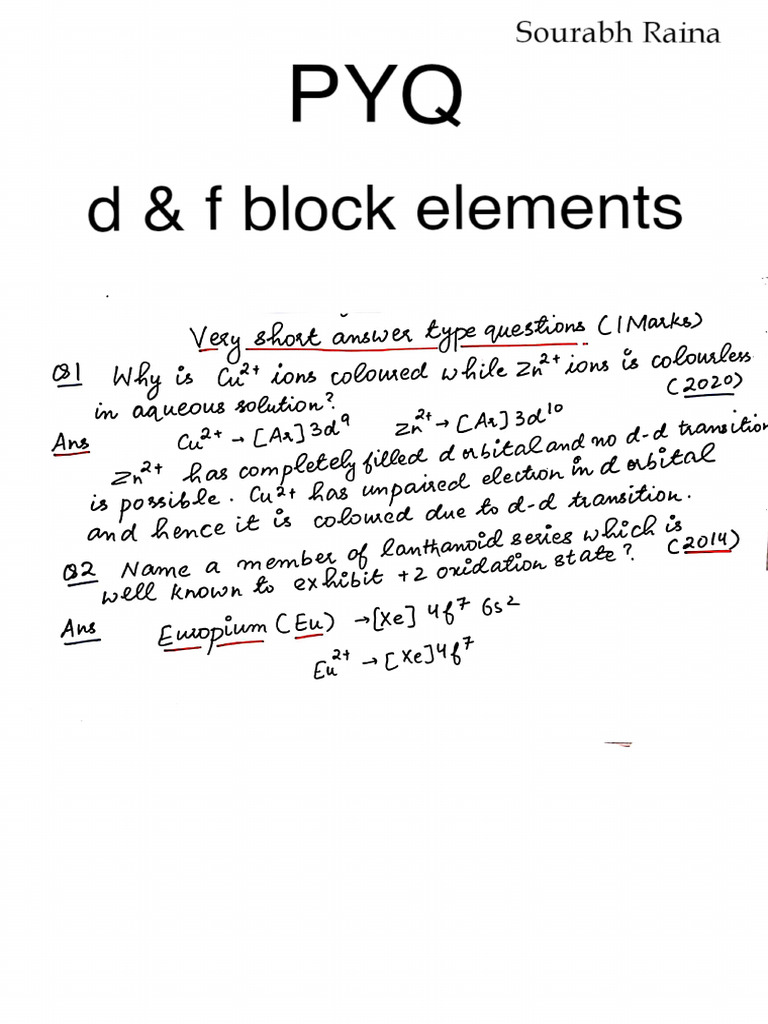 Sourabh Raina
PYQ
d & f block elements
Very short answer type questions (1 Marks)
Q1 Why is Cu²⁺ ions coloured while Zn²⁺ ions is colourless
in aqueous solution? (2020)
Ans Cu²⁺ → [Ar] 3d⁹ Zn²⁺ → [Ar] 3d¹⁰
Zn²⁺ has completely filled d orbital and no d-d transition
is possible. Cu²⁺ has unpaired electron in d orbital
and hence it is coloured due to d-d transition.
Q2 Name a member of lanthanoid series which is
well known to exhibit +2 oxidation state? (2014)
Ans Europium (Eu) → [Xe] 4f⁷ 6s²
Eu²⁺ → [Xe] 4f⁷